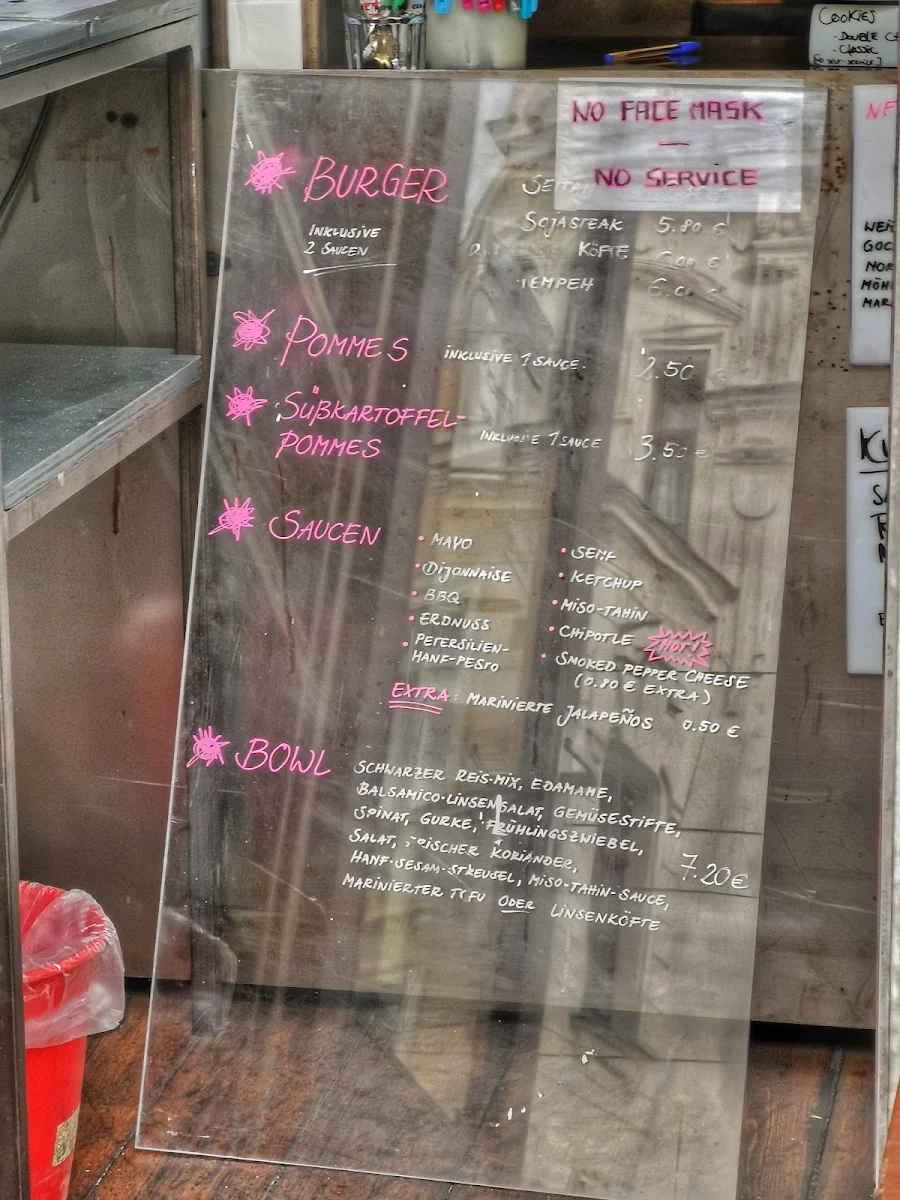 COOKIES
- DOUBLE
- CLASSIC
NO FACE MASK
—
NO SERVICE
BURGER
INKLUSIVE
2 SAUCEN
SOJASTEAK 5.80 €
KÖFTE 6.00 €
TEMPEH
POMMES INKLUSIVE 1 SAUCE 2.50
SÜßKARTOFFEL-
POMMES INKLUSIVE 1 SAUCE 3.50 €
SAUCEN
• MAYO
• DIJONNAISE
• BBQ
• ERDNUSS
• PETERSILIEN-
HANF-PESTO
• SENF
• KETCHUP
• MISO-TAHIN
• CHIPOTLE HOT!
• SMOKED PEPPER CHEESE
(0.80 € EXTRA)
EXTRA: MARINIERTE JALAPEÑOS 0.50 €
BOWL
SCHWARZER REIS-MIX, EDAMAME,
BALSAMICO-LINSENSALAT, GEMÜSESTIFTE,
SPINAT, GURKE, FRÜHLINGSZWIEBEL,
SALAT, FRISCHER KORIANDER,
HANF-SESAM-STREUSEL, MISO-TAHIN-SAUCE,
MARINIERTER TOFU ODER LINSENKÖFTE
7.20 €